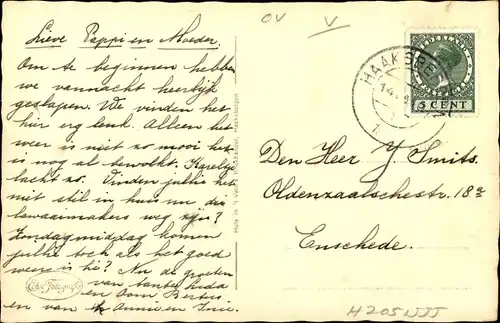 OV V
Lieve Pappi en Moeder.
Om te beginnen hebben
we vannacht heerlijk
geslapen. We vinden het
hier erg leuk. Alleen het
weer is niet zoo mooi het
is nog al bewolkt. Kareltje
lacht zo. Vinden jullie het
niet stil in huis nu die
lawaaimakers weg zijn?
Zondagmiddag komen
jullie toch als het goed
weer is hè? Nu de groeten
van tante
en Oom
en van Annie en
HAAKSBERGEN
5 CENT
Den Heer J. Smits.
Oldenzaalschestr. 18a
Enschede.
H205